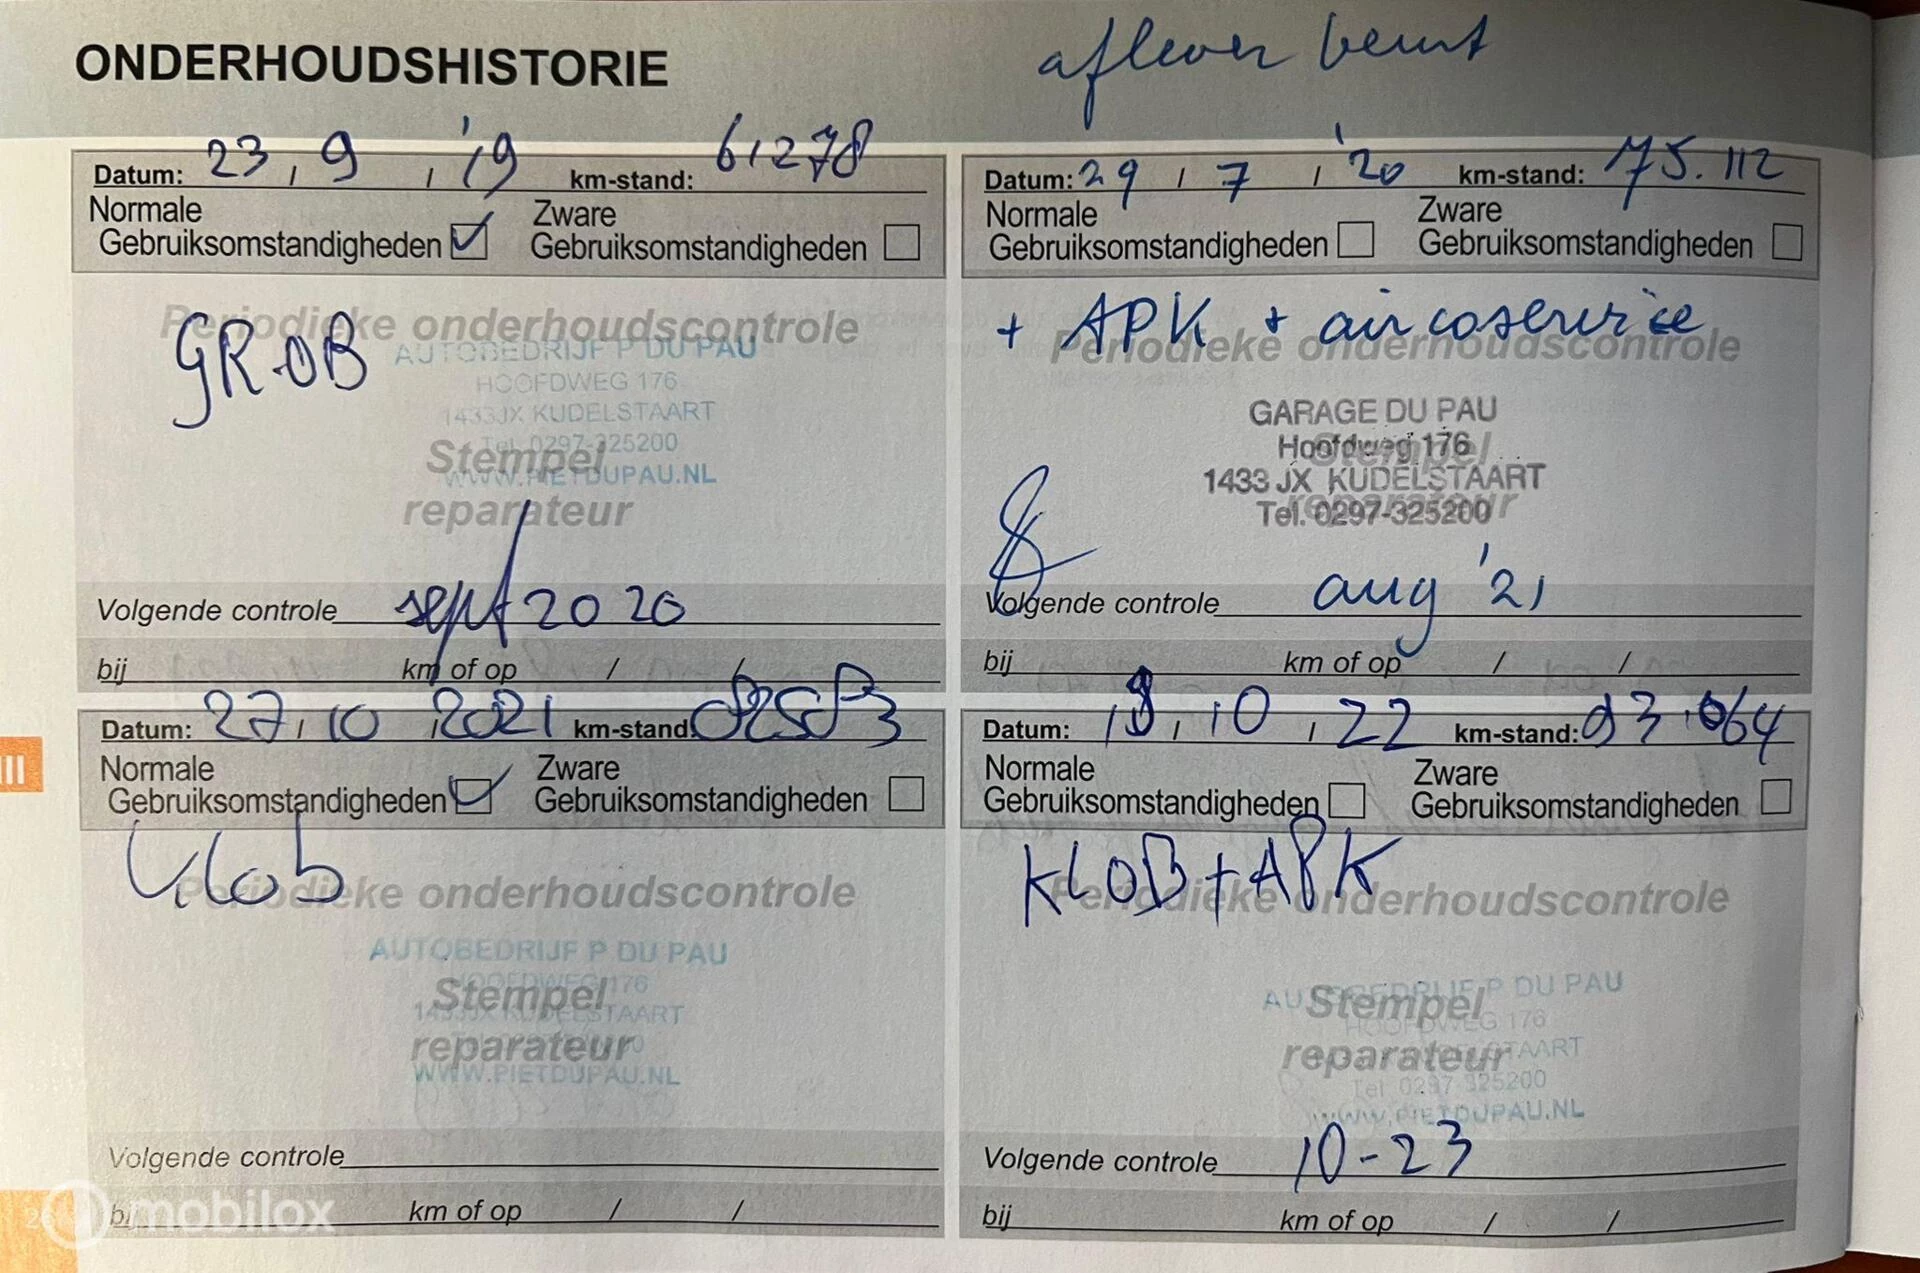 ONDERHOUDSHISTORIE
aflever beurt
Datum: 23 / 9 / '19 km-stand: 61278
Normale Gebruiksomstandigheden Zware Gebruiksomstandigheden
Periodieke onderhoudscontrole
GR.OB
AUTOBEDRIJF P DU PAU
HOOFDWEG 176
1433JX KUDELSTAART
Tel. 0297-325200
WWW.PIETDUPAU.NL
Stempel
reparateur
Volgende controle sept 2020
bij km of op / /
Datum: 29 / 7 / '20 km-stand: 75.112
Normale Gebruiksomstandigheden Zware Gebruiksomstandigheden
+ APK + aircoservice
Periodieke onderhoudscontrole
GARAGE DU PAU
Hoofdweg 176
1433 JX KUDELSTAART
Tel. 0297-325200
Stempel
reparateur
Volgende controle aug '21
bij km of op / /
III
Datum: 27 / 10 / 2021 km-stand:
Normale Gebruiksomstandigheden Zware Gebruiksomstandigheden
klob
Periodieke onderhoudscontrole
AUTOBEDRIJF P DU PAU
HOOFDWEG 176
1433JX KUDELSTAART
WWW.PIETDUPAU.NL
Stempel
reparateur
Volgende controle
bij km of op / /
Datum: / 10 / 22 km-stand: 93.064
Normale Gebruiksomstandigheden Zware Gebruiksomstandigheden
KLOB + APK
Periodieke onderhoudscontrole
AUTOBEDRIJF P DU PAU
HOOFDWEG 176
KUDELSTAART
Tel. 0297-325200
WWW.PIETDUPAU.NL
Stempel
reparateur
Volgende controle 10-23
bij km of op / /
mobilox